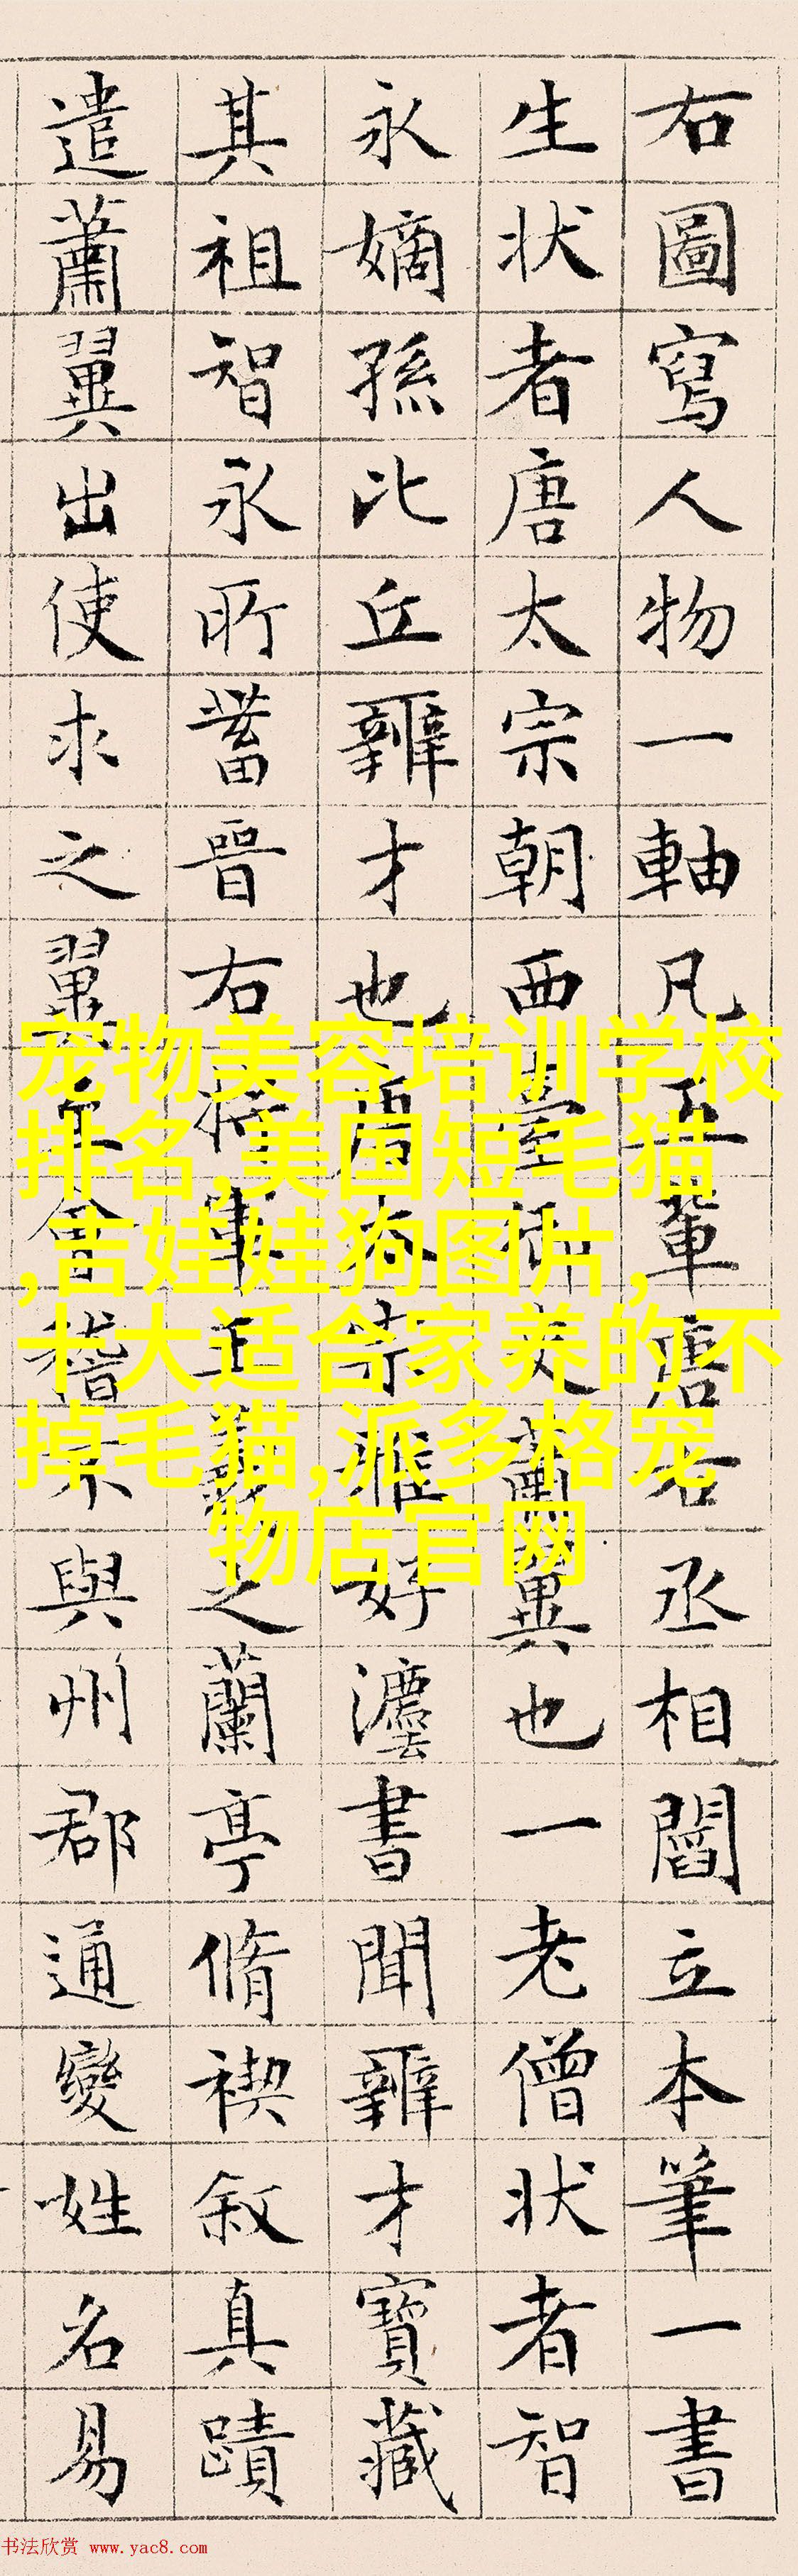 右圖寫人物一軸凡五輩唐右丞相閻立本筆一書
生状者唐太宗朝西臺御史蕭翼也一老僧状者智
永嫡孫比丘辯才也唐太宗雅好灋書聞辯才寶藏
其祖智永所蓄晉右将軍王羲之蘭亭脩禊叙真蹟
遣蕭翼出使求之翼至會稽不與州郡通變姓名易
宠物美容培训学校
排名,美国短毛猫
,吉娃娃狗图片,
十大适合家养的不
掉毛猫,派多格宠
物店官网
书法欣赏 www.yac8.com